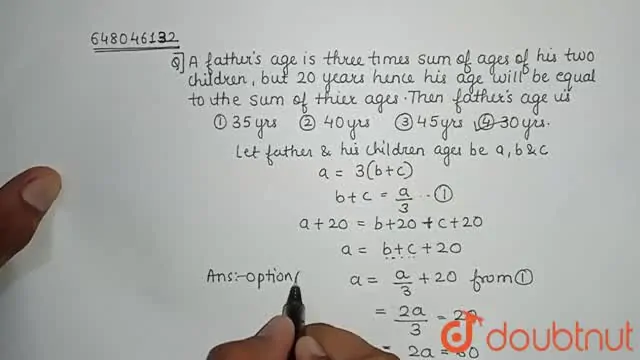 648046132
Q] A father's age is three times sum of ages of his two
children, but 20 years hence his age will be equal
to the sum of thier ages. Then father's age is
① 35 yrs ② 40 yrs ③ 45 yrs ④ 30 yrs.
Let father & his children ages be a, b & c
a = 3(b+c)
b+c = a/3 ... ①
a+20 = b+20+c+20
a = b+c+20
Ans:- option( a = a/3 + 20 from ①
= 2a/3 = 20
= 2a = 60
doubtnut